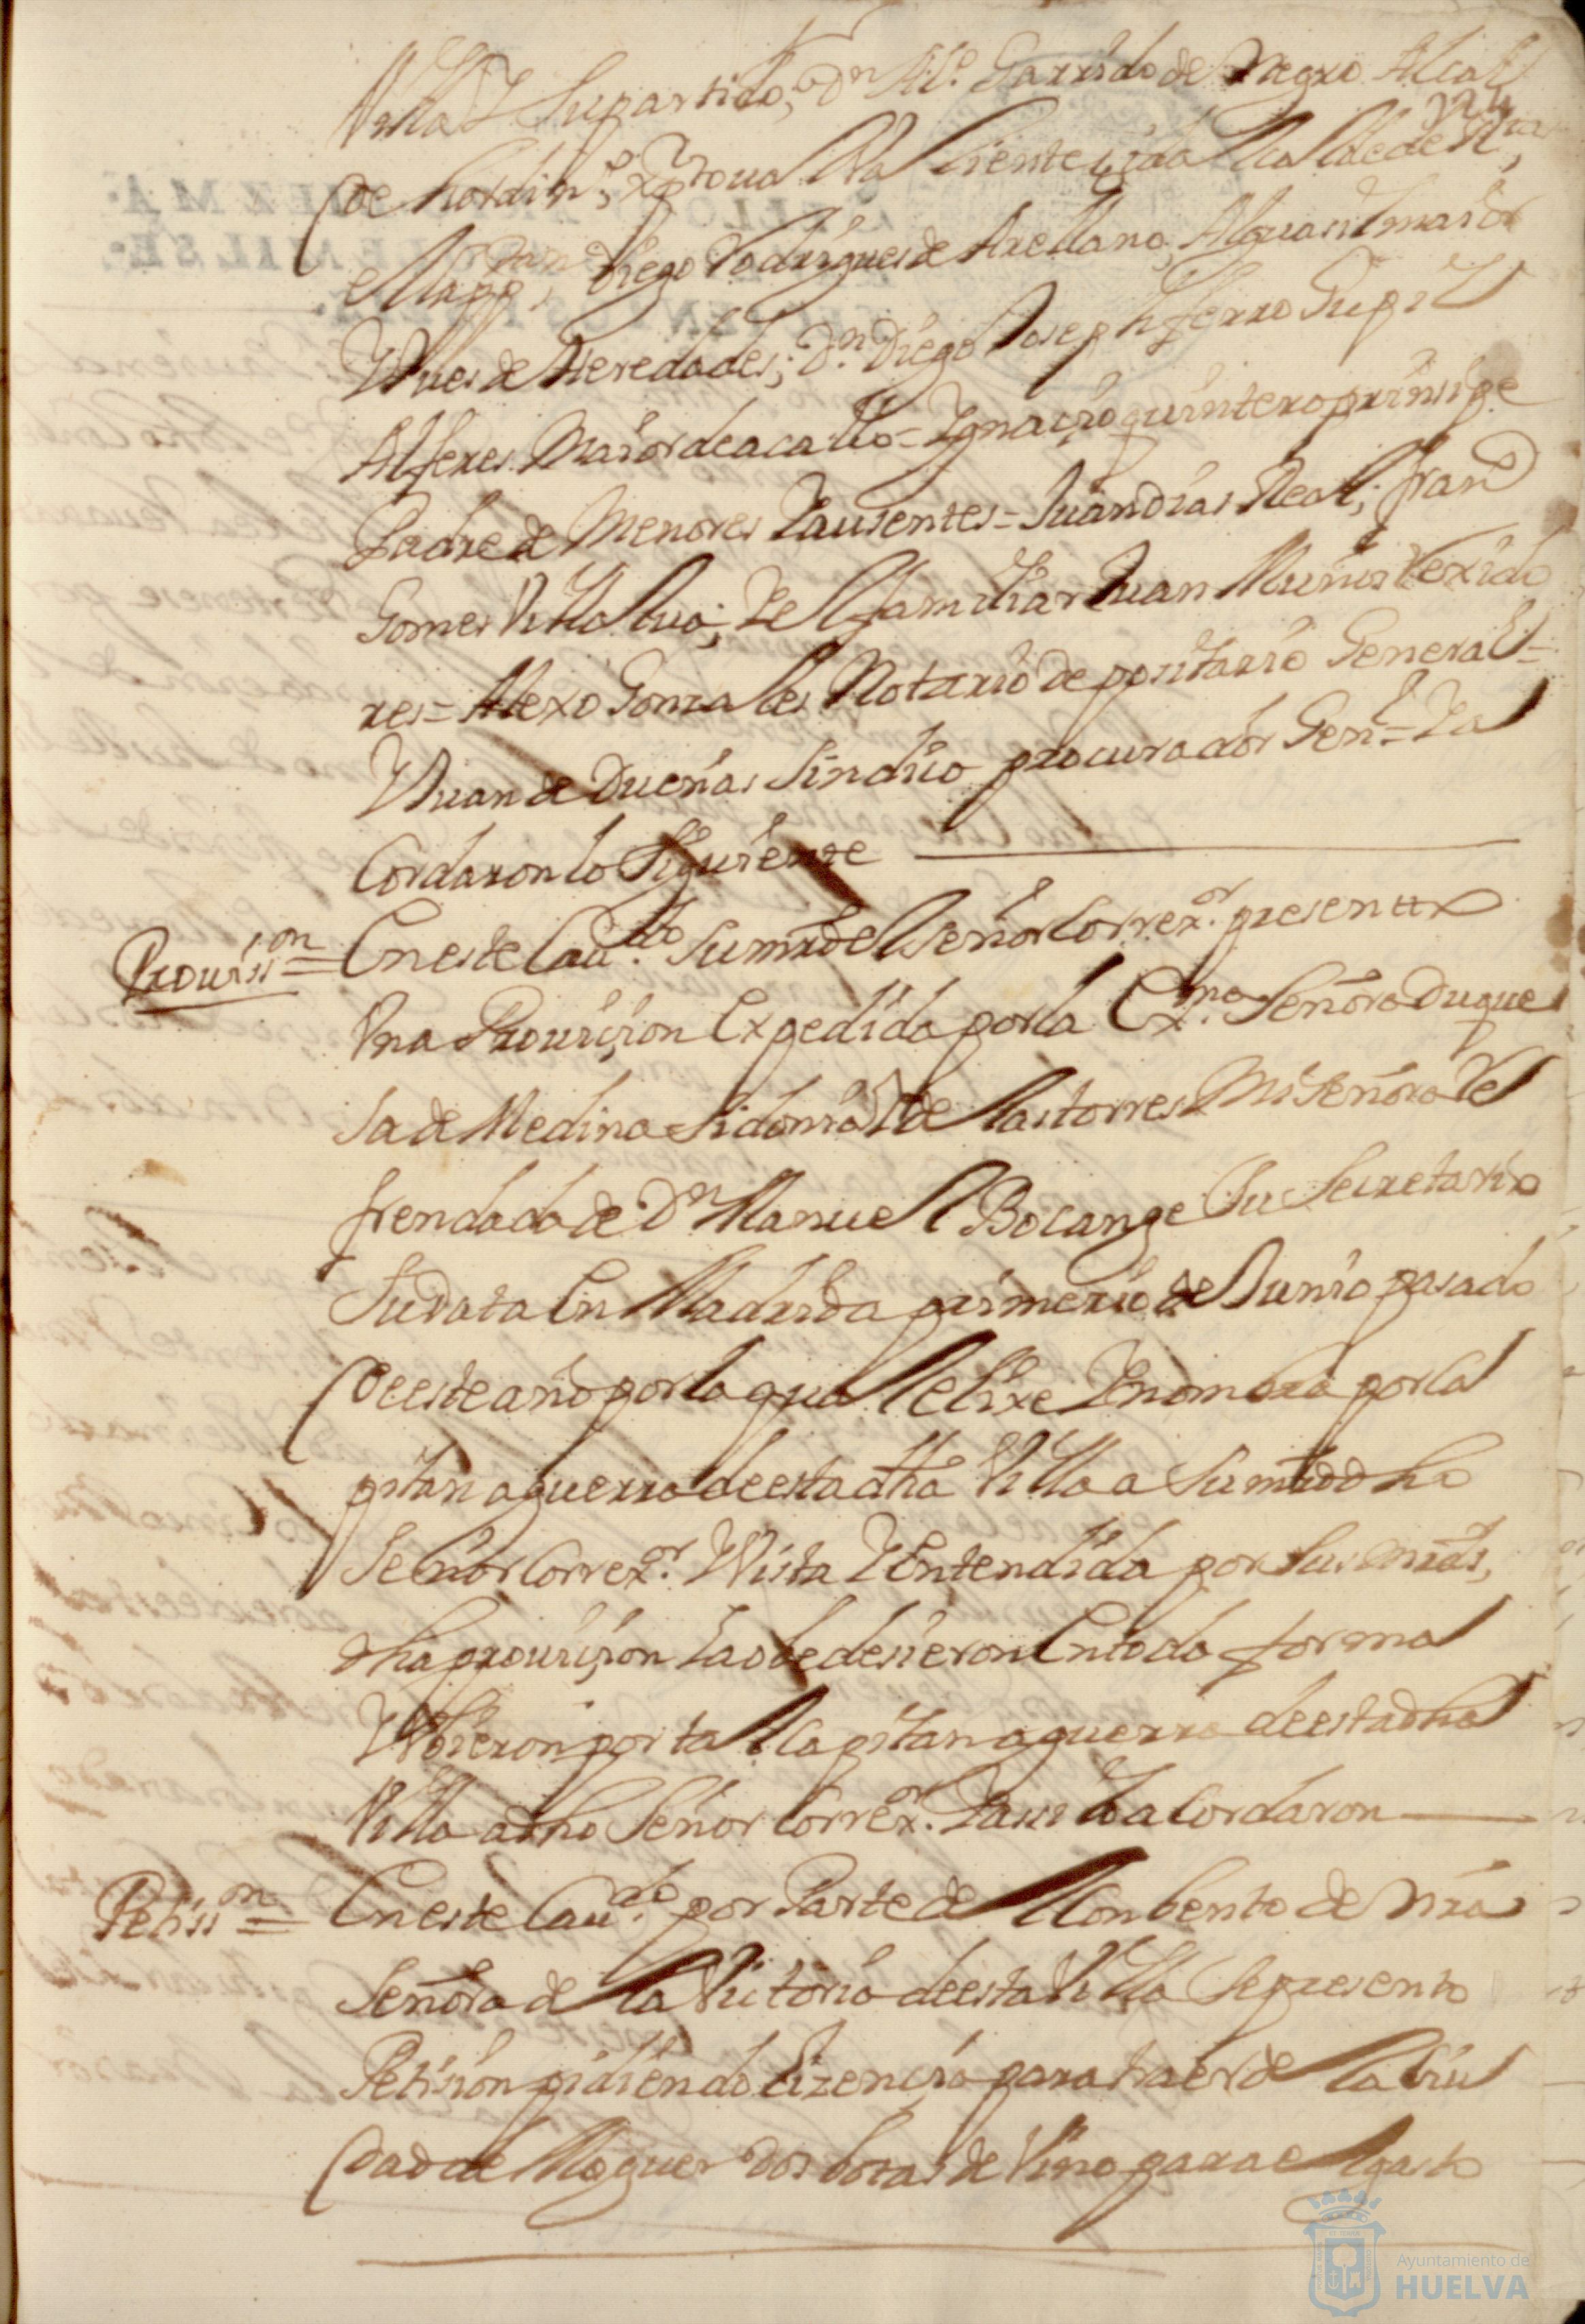 Villa y Supartido, Dn Al.º Garrido de Negro Alcal
324
de hordin.º, xptoual Va lienteçida Alcalde de la
Mapp, Diego Rodrigues de Arellano, Alguasil maior
Yuez de Heredades; Dn. Diego Joseph fferro Gupil
Alferes Maior de acauº = Ygnaçio quintero prinsipe
Padre de Menores Yausentes = Juan Dias Real; fran.co
Gomes Villalua; Yel familiar Juan Munis Rexido
res = Alexo Gonsales Notario depositario General =
Yuan de Dueñas Sindico procurador Genl = Ya
Cordaron lo Siguiente
Prouisson = En este Cauº Sumrd el Señor Correxor presento
Vna Prouiçion Expedida por la Exma Señora Duque
sa de Medina Sidonia Y de las torres Mi Señora Re
frendada de Dn Manuel Bocange Su Secretario
Su data En Madrid a primero de Junio pasado
de este año por la qual elixe Y nombra por Ca
pitan aguerra de esta dha Villa a Sumrd dho
Señor Correxor Vista Y Entendida por Sus mrds,
dha prouiçion La obedesieron En toda forma
Y Vbieron por tal Capitan aguerra de esta dha
Villa a dho Señor Correxr. Y asi Lo aCordaron
Petisson = En este Cauº por Parte del Conbento de nra
Señora de la Victoria de esta Villa Se presento
Petision pidiendo Lizençia para traer de la Ciu
dad de Moguer dos botas de Vino para el gasto
Ayuntamiento de
HUELVA